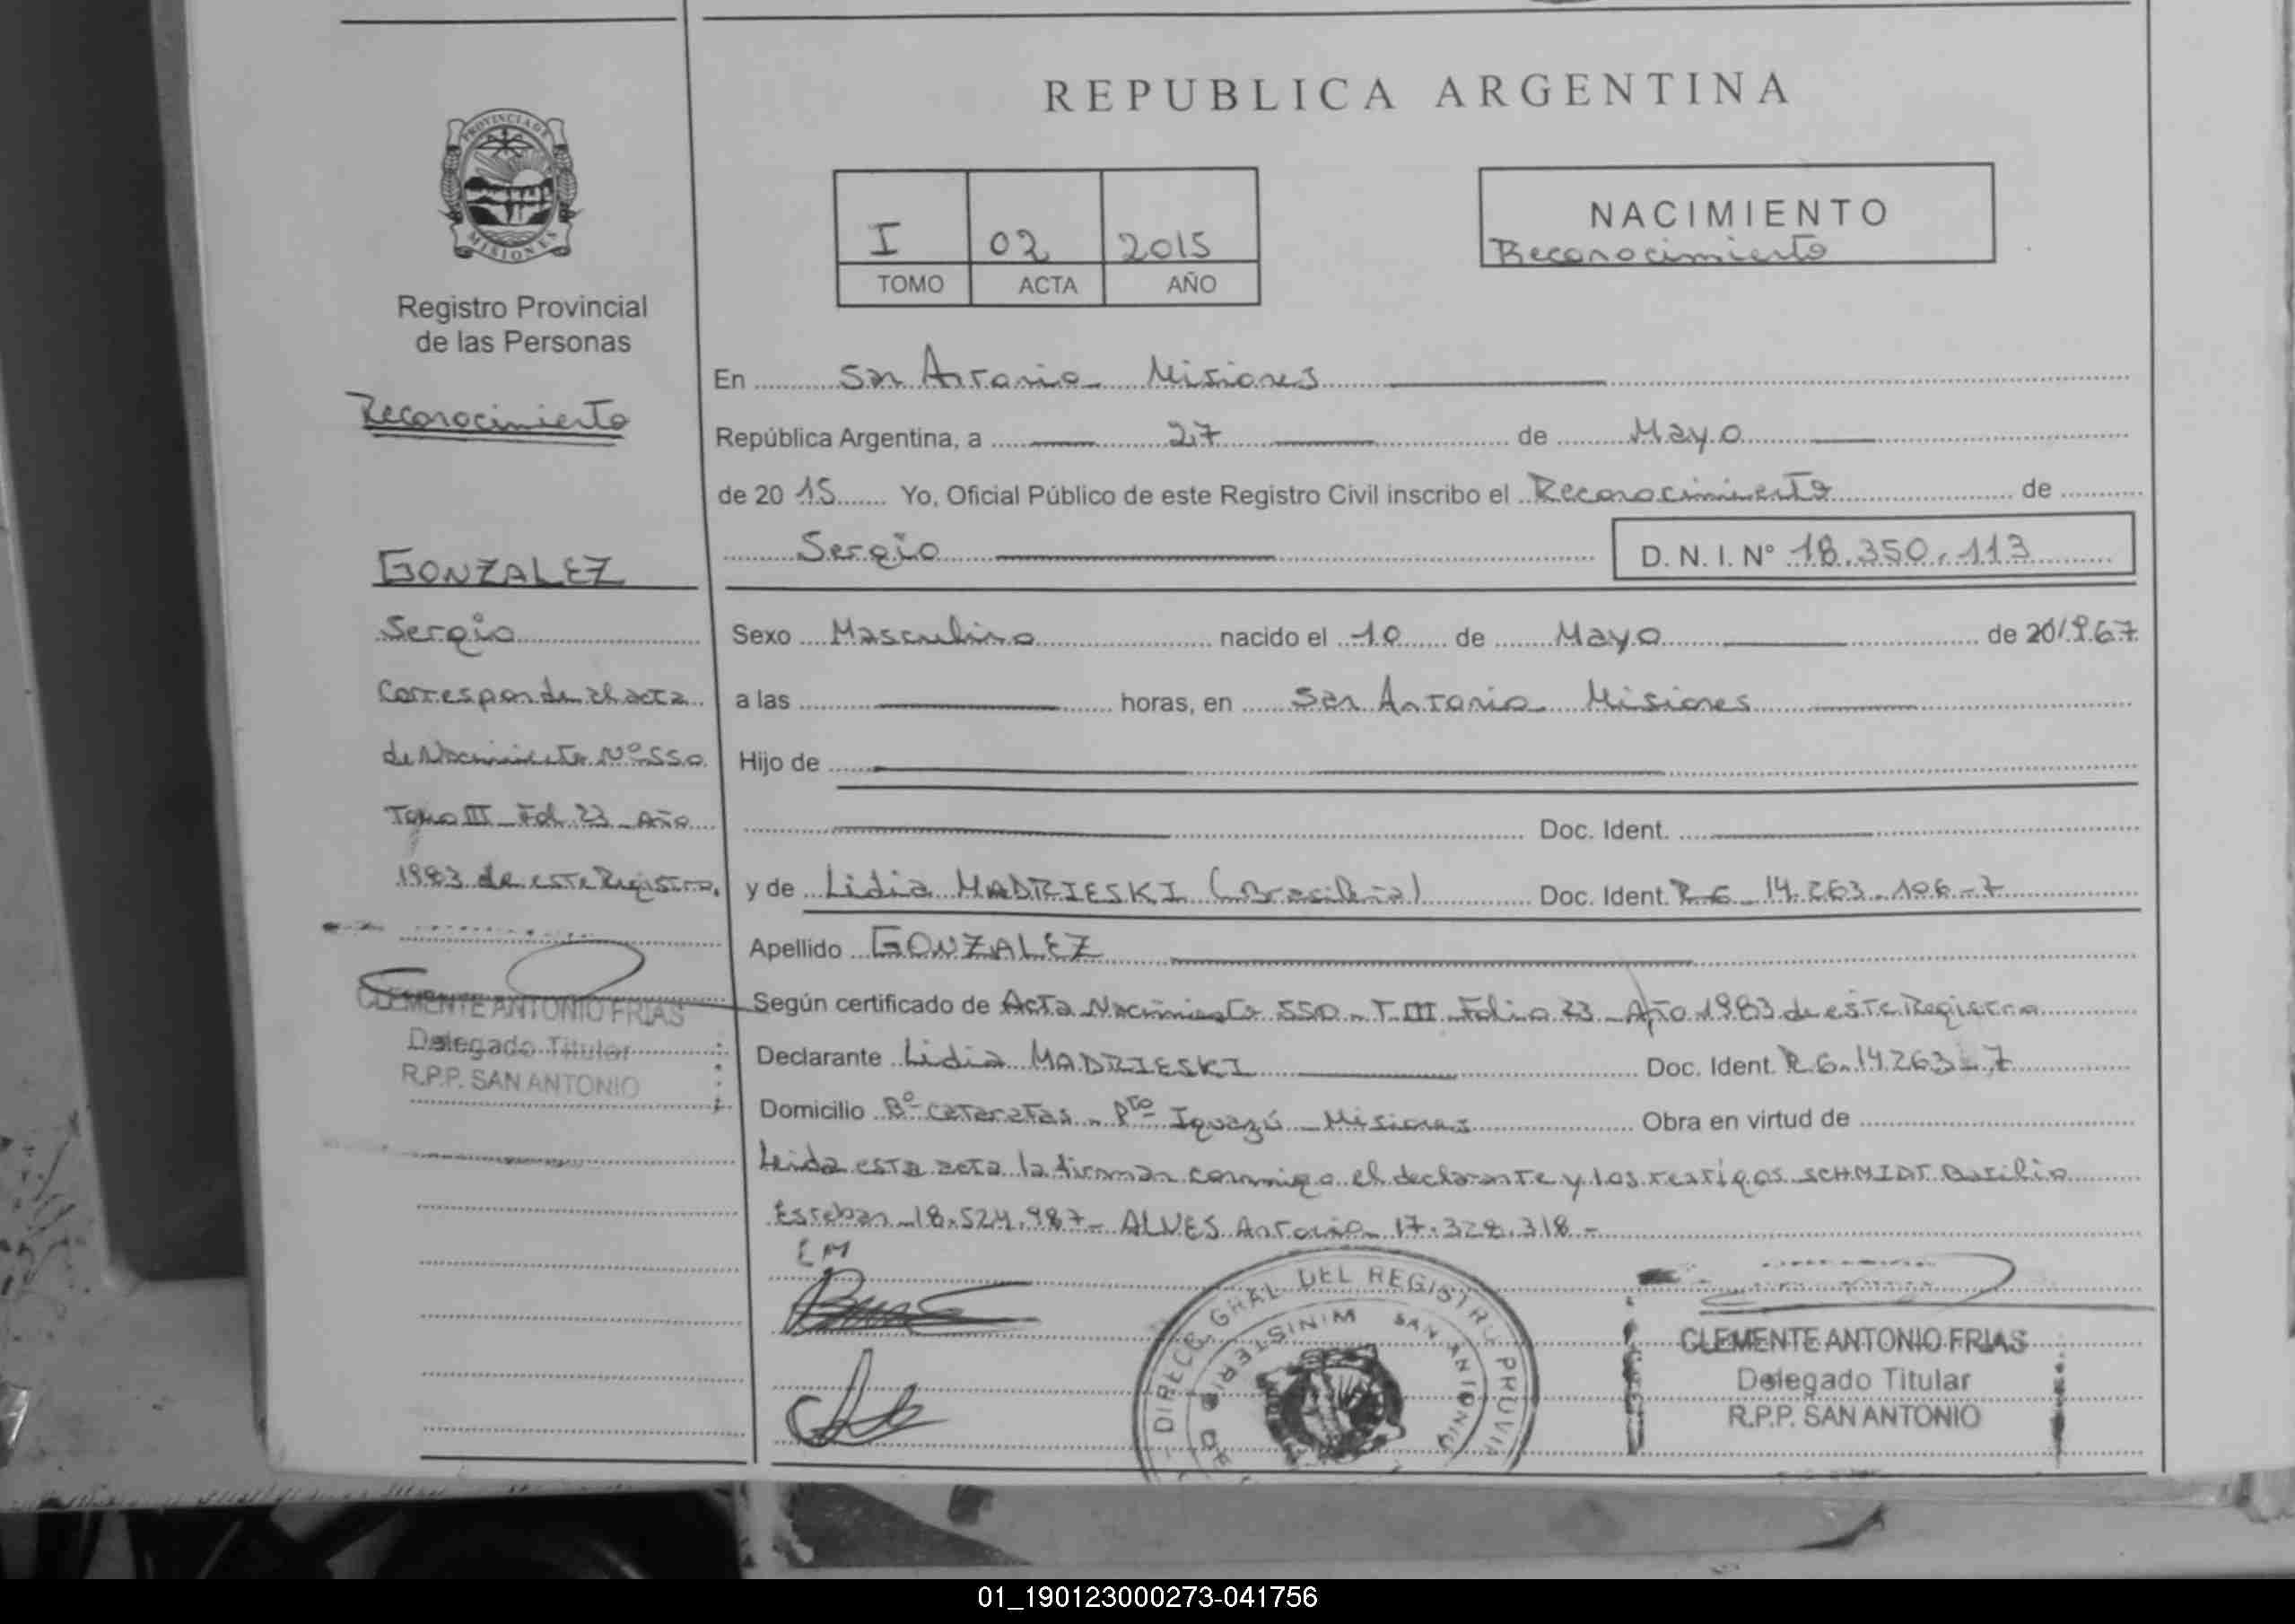 REPUBLICA ARGENTINA
PROVINCIA DE
MISIONES
Registro Provincial
de las Personas
Reconocimiento
GONZALEZ
Sergio
Corresponde al acta
de Nacimiento Nº 550
Tomo III - Fol. 23 - Año
1983 de este Registro.
CLEMENTE ANTONIO FRIAS
Delegado Titular
R.P.P. SAN ANTONIO
I 02 2015
TOMO ACTA AÑO
NACIMIENTO
Reconocimiento
En San Antonio Misiones
República Argentina, a 27 de Mayo
de 20 15 Yo, Oficial Público de este Registro Civil inscribo el Reconocimiento de
Sergio D. N. I. N° 18.350.113
Sexo Masculino nacido el 10 de Mayo de 20/967
a las horas, en San Antonio Misiones
Hijo de
Doc. Ident.
y de Lidia MADRIESKI (Brasileña) Doc. Ident. R G 14.263.106-7
Apellido GONZALEZ
Según certificado de Acta Nacimiento 550 - T III Folio 23 - Año 1983 de este Registro
Declarante Lidia MADRIESKI Doc. Ident. R G. 14.263 - 7
Domicilio Bº Cataratas - Pto Iguazú - Misiones Obra en virtud de
Leida esta acta la firman conmigo el declarante y los testigos SCHMIDT Basilio
Esteban 18.524.987 - ALVES Antonio 17.328.318 -
LM
DIRECC. GRAL DEL REGISTR PROVI
MINISTERIO DE
SAN ANTONIO
CLEMENTE ANTONIO FRIAS
Delegado Titular
R.P.P. SAN ANTONIO
01_190123000273-041756